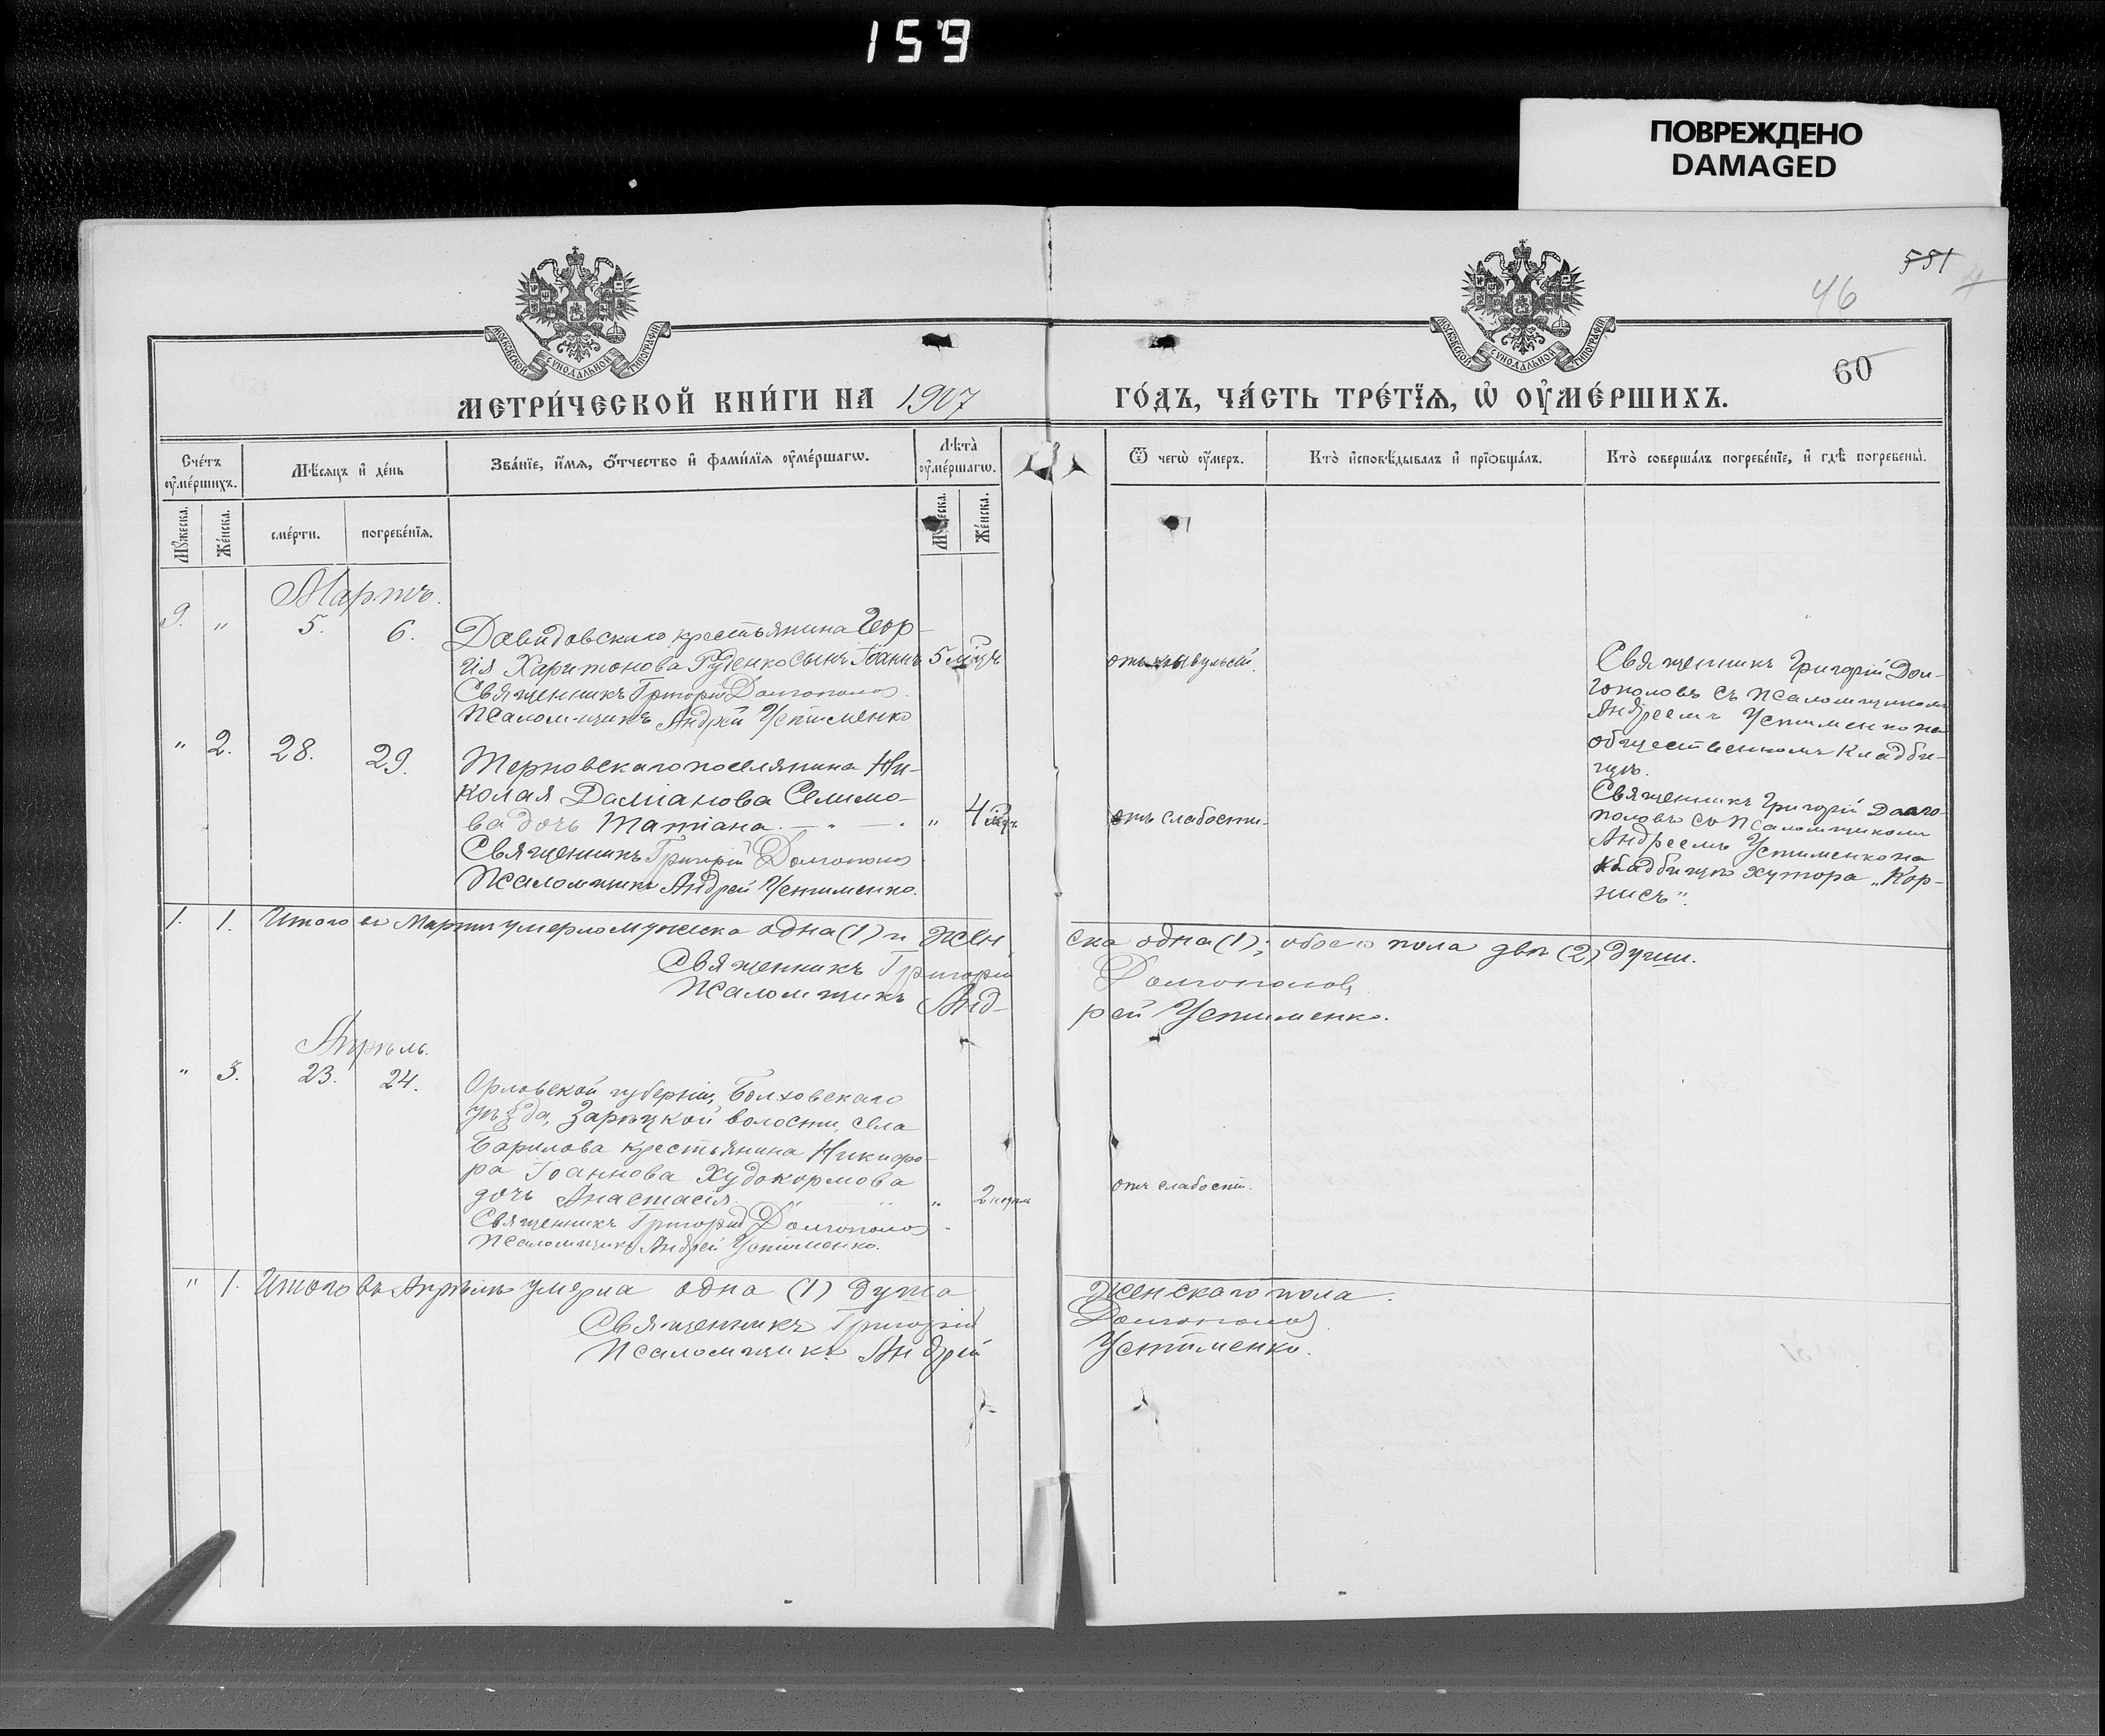 159
ПОВРЕЖДЕНО
DAMAGED
551
46
60
МОСКОВСКОЙ СѴНОДАЛЬНОЙ ТИПОГРАФІИ
МОСКОВСКОЙ СѴНОДАЛЬНОЙ ТИПОГРАФІИ
МЕТРИ́ЧЕСКОЙ КНИ́ГИ НА 1907 ГО́ДЪ, ЧА́СТЬ ТРЕ́ТЇѦ, Ѡ҆ ОУ҆МЕ́РШИХЪ.
Сче́тъ оу҆ме́ршихъ.
Мѣ́сяцъ и҆ де́нь
Зва́нїе, и҆́мѧ, ѻ҆́тчество и҆ фами́лїѧ оу҆ме́ршагѡ.
Лѣ́та̀ оу҆ме́ршагѡ.
Ѿ чегѡ̀ оу҆́меръ.
Кто̀ и҆сповѣ́дывалъ и҆ прїѡбща́лъ.
Кто̀ соверша́лъ погребе́нїе, и҆ гдѣ̀ погребены̀.
Мꙋ́жеска.
Же́нска.
сме́рти.
погребе́нїѧ.
Мꙋ́жеска.
Же́нска.
Мартъ.
9. " 5. 6. Давидовскаго крестьянина Геор-
гія Харитонова Руденко сынъ Іоаннъ 5 мѣсяц.
Священникъ Григорій Долгополов
Псаломщикъ Андрей Устименко
отъ
Священникъ Григорій Дол-
гополовъ съ псаломщикомъ
Андреемъ Устименко на
общественномъ кладби-
щѣ.
" 2. 28. 29. Терновскаго поселянина Ни-
колая Даміанова Селимо-
ва дочь Татіана. " 4
Священникъ Григорій Долгополов
Псаломщикъ Андрей Устименко.
отъ слабости.
Священникъ Григорій Долго-
половъ съ псаломщикомъ
Андреемъ Устименко на
кладбищѣ хутора „Кор-
нисъ".
1. 1. Итого въ Мартѣ умерло мужеска одна (1) и жен
ска одна (1); обоего пола двѣ (2) души.
Священникъ Григорій Долгополов
Псаломщикъ Анд-
рей Устименко.
Апрѣль.
" 3. 23. 24. Орловской губерніи, Болховскаго
уѣзда, Зарѣцкой волости, села
Барилова крестьянина Никифо-
ра Іоаннова Худокормова
дочь Анастасія. " 2 недѣли
отъ слабости.
Священникъ Григорій Долгополов
Псаломщикъ Андрей Устименко.
" 1. Итого въ Апрѣлѣ умерла одна (1) душа
женскаго пола.
Священникъ Григорій Долгополов
Псаломщикъ Андрей Устименко.